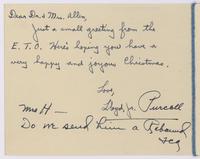 Dear Dr. & Mrs. Allen,
Just a small greeting from the
E. T. O. Here's hoping you have a
very happy and joyous Christmas.
Love,
Lloyd, Jr. Purcell
Mrs H—
Do we send him a